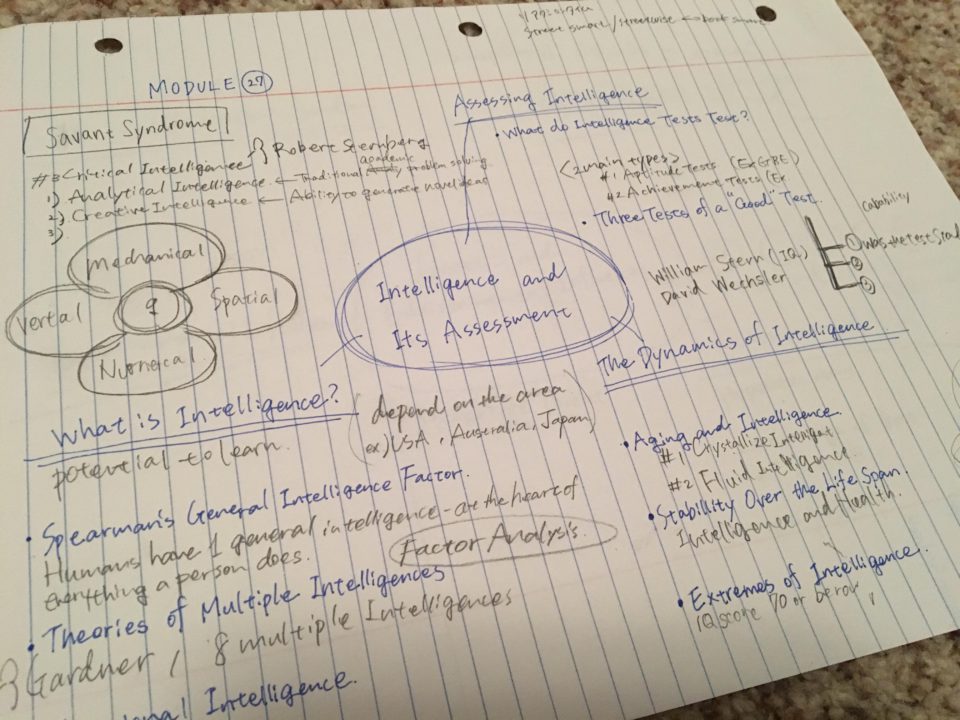 Street smart / streetwise ← book smart
MODULE 27
Savant Syndrome
#3 Critical Intelligence } Robert Sternberg
1) Analytical Intelligence ← Traditional academic problem solving
2) Creative Intelligence ← Ability to generate novel ideas
3)
Mechanical
Vertal
g
Spatial
Numerical
Assessing Intelligence
• What do Intelligence Tests Test?
<2 main types>
#1 Aptitude Tests (Ex GRE)
#2 Achievement Tests (Ex.
• Three Tests of a "Good" Test.
capability
William Stern (IQ)
David Wechsler
① Was the test
②
③
Intelligence and
Its Assessment
What is Intelligence?
potential to learn.
(depend on the area
ex) USA, Australia, Japan)
• Spearman's General Intelligence Factor.
Humans have 1 general intelligence - at the heart of
everything a person does.
Factor Analysis.
• Theories of Multiple Intelligences
} Gardner / 8 multiple Intelligences
Intelligence.
The Dynamics of Intelligence
• Aging and Intelligence.
#1 Crystallize
#2 Fluid Intelligence
• Stabillity Over the Life Span.
Intelligence and Health.
• Extremes of Intelligence.
IQ score 70 or berow